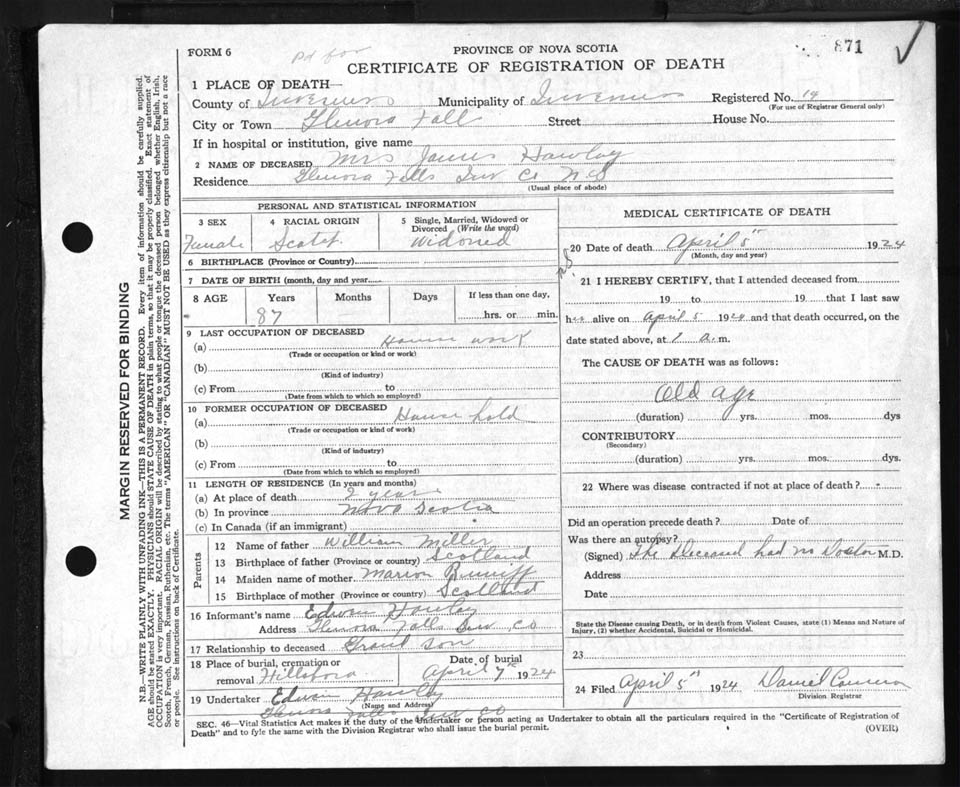 871
FORM 6
Pd for
PROVINCE OF NOVA SCOTIA
CERTIFICATE OF REGISTRATION OF DEATH
1 PLACE OF DEATH—
County of Inverness Municipality of Inverness Registered No. 14
(For use of Registrar General only)
City or Town Glenora Falls Street House No.
If in hospital or institution, give name
2 NAME OF DECEASED Mrs James Hawley
Residence Glenora Falls Inv Co N.S
(Usual place of abode)
PERSONAL AND STATISTICAL INFORMATION
3 SEX Female
4 RACIAL ORIGIN Scotch
5 Single, Married, Widowed or Divorced (Write the word)
Widowed
6 BIRTHPLACE (Province or Country)
7 DATE OF BIRTH (month, day and year
8 AGE Years Months Days If less than one day,
87 hrs. or min.
9 LAST OCCUPATION OF DECEASED
(a) House work
(Trade or occupation or kind or work)
(b)
(Kind of industry)
(c) From to
(Date from which to which so employed)
10 FORMER OCCUPATION OF DECEASED
(a) House hold
(Trade or occupation or kind of work)
(b)
(Kind of industry)
(c) From to
(Date from which to which so employed)
11 LENGTH OF RESIDENCE (In years and months)
(a) At place of death 2 years
(b) In province Nova Scotia
(c) In Canada (if an immigrant)
Parents
12 Name of father William Miller
13 Birthplace of father (Province or country) Scotland
14 Maiden name of mother Marion
15 Birthplace of mother (Province or country) Scotland
16 Informant's name Edwin Hawley
Address Glenora Falls Inv Co
17 Relationship to deceased Grand Son
18 Place of burial, cremation or removal Hillsboro
Date of burial April 7th 1924
19 Undertaker Edwin Hawley
(Name and Address)
Glenora Falls Inv CO
MEDICAL CERTIFICATE OF DEATH
20 Date of death April 5th 1924
(Month, day and year)
21 I HEREBY CERTIFY, that I attended deceased from
19 to 19 that I last saw
her alive on April 5 19 and that death occurred, on the
date stated above, at 1 a.m.
The CAUSE OF DEATH was as follows:
Old age
(duration) yrs. mos. dys
CONTRIBUTORY
(Secondary)
(duration) yrs. mos. dys.
22 Where was disease contracted if not at place of death?
Did an operation precede death? Date of
Was there an autopsy?
(Signed) The Deceased had no Doctor M.D.
Address
Date
State the Disease causing Death, or in death from Violent Causes, state (1) Means and Nature of
Injury, (2) whether Accidental, Suicidal or Homicidal.
23
24 Filed April 5th 1924 Daniel Cameron
Division Registrar
SEC. 46—Vital Statistics Act makes it the duty of the Undertaker or person acting as Undertaker to obtain all the particulars required in the "Certificate of Registration of
Death" and to fyle the same with the Division Registrar who shall issue the burial permit.
(OVER)
MARGIN RESERVED FOR BINDING
N.B.—WRITE PLAINLY WITH UNFADING INK—THIS IS A PERMANENT RECORD. Every item of information should be carefully supplied.
AGE should be stated EXACTLY. PHYSICIANS should STATE CAUSE OF DEATH in plain terms, so that it may be properly classified. Exact statement of
OCCUPATION is very important. RACIAL ORIGIN will be described by stating to what people or tongue the deceased person belonged whether English, Irish,
Scotch, French, German, Russian, Ruthenian, etc. The terms "AMERICAN" or "CANADIAN" MUST NOT BE USED as they express citizenship but not a race
or people. See instructions on back of Certificate.